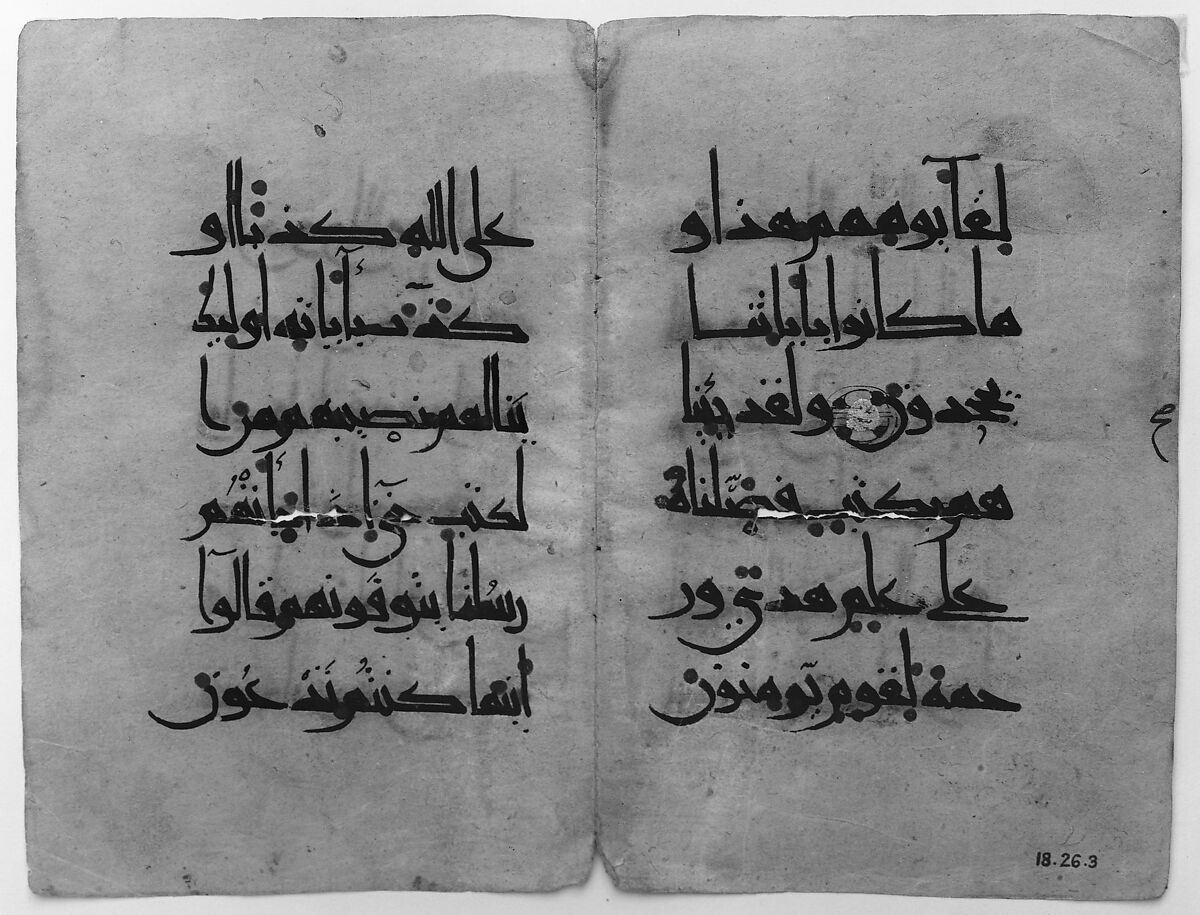 لقآ يومهم هذا و
ما كانوا بأياتنا
يجحدون ولقد جئنا
هم بكتب فصّلناه
على علم هدى ور
حمة لقوم يؤمنون
على الله كذبا او
كذّب بأياته اولئك
ينالهم نصيبهم من ا
لكتب حتّى اذا جأتهم
رسُلنا يتوفونهم قالوآ
اينما كنتُم تَدْعُون
18.26.3